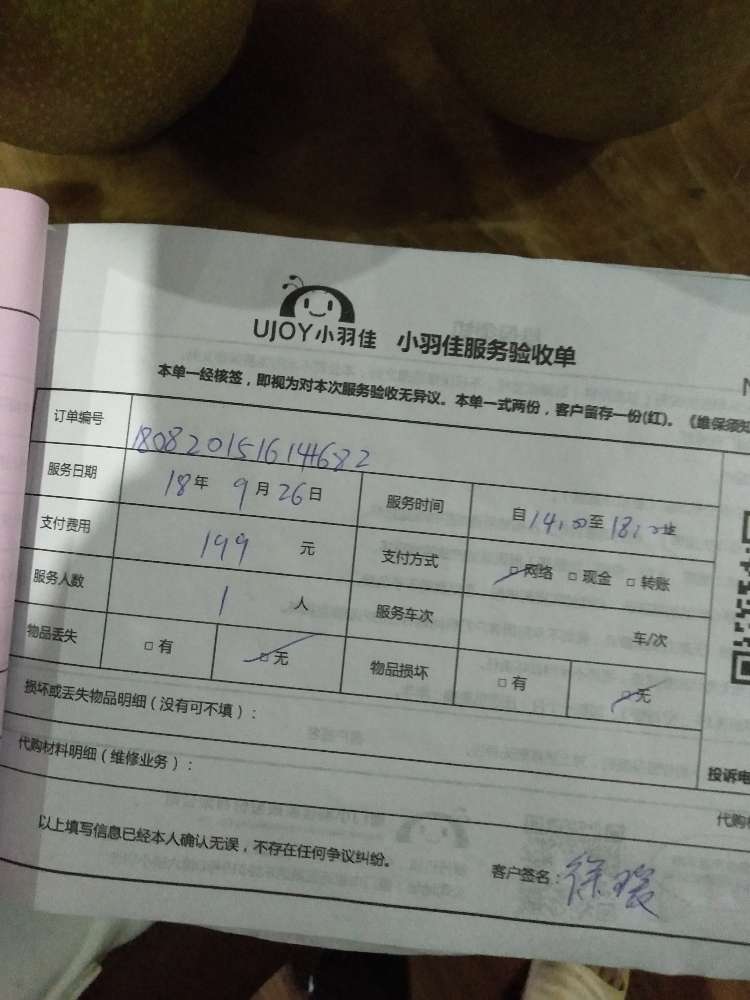 UJOY小羽佳 小羽佳服务验收单
本单一经核签，即视为对本次服务验收无异议。本单一式两份，客户留存一份(红)。《维保须知
订单编号 180820151614682
服务日期 18年 9月26日 服务时间 自14:00至18:00止
支付费用 199 元 支付方式 □网络 □现金 □转账
服务人数 1 人 服务车次 车/次
物品丢失 □有 □无 物品损坏 □有 □无
损坏或丢失物品明细（没有可不填）：
投诉电
代购材料明细（维修业务）：
代购材
以上填写信息已经本人确认无误，不存在任何争议纠纷。
客户签名：徐